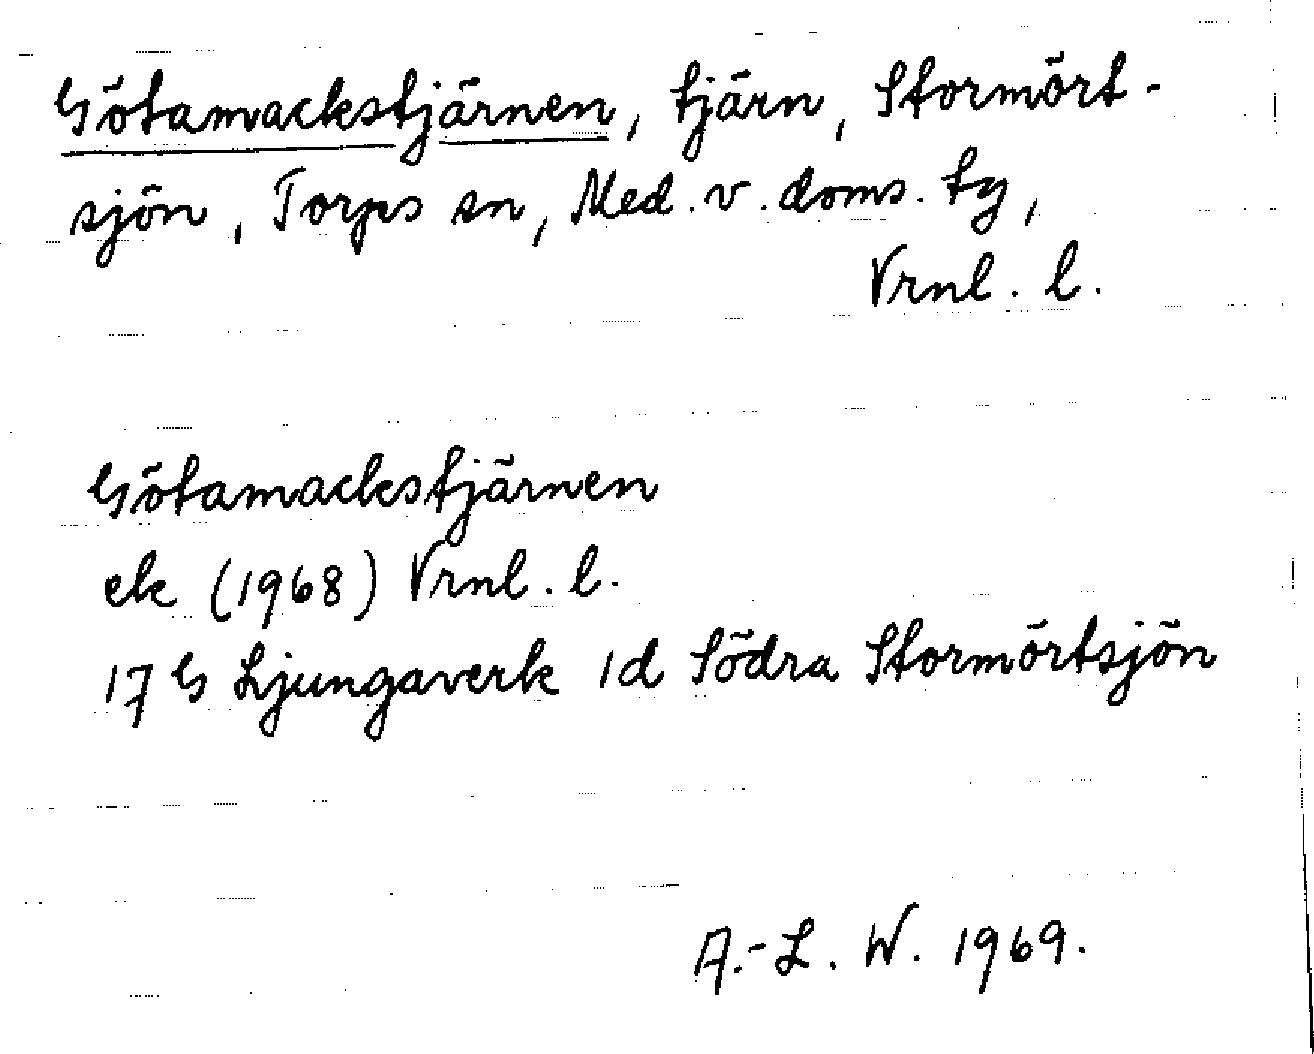 Götamackstjärnen, tjärn, Stormört-
sjön, Torps sn, Med. v. doms. tg,
Vrnl. l.
Götamackstjärnen
ek (1968) Vrnl. l.
17 G Ljungaverk 1d Södra Stormörtsjön
A.-L. W. 1969.